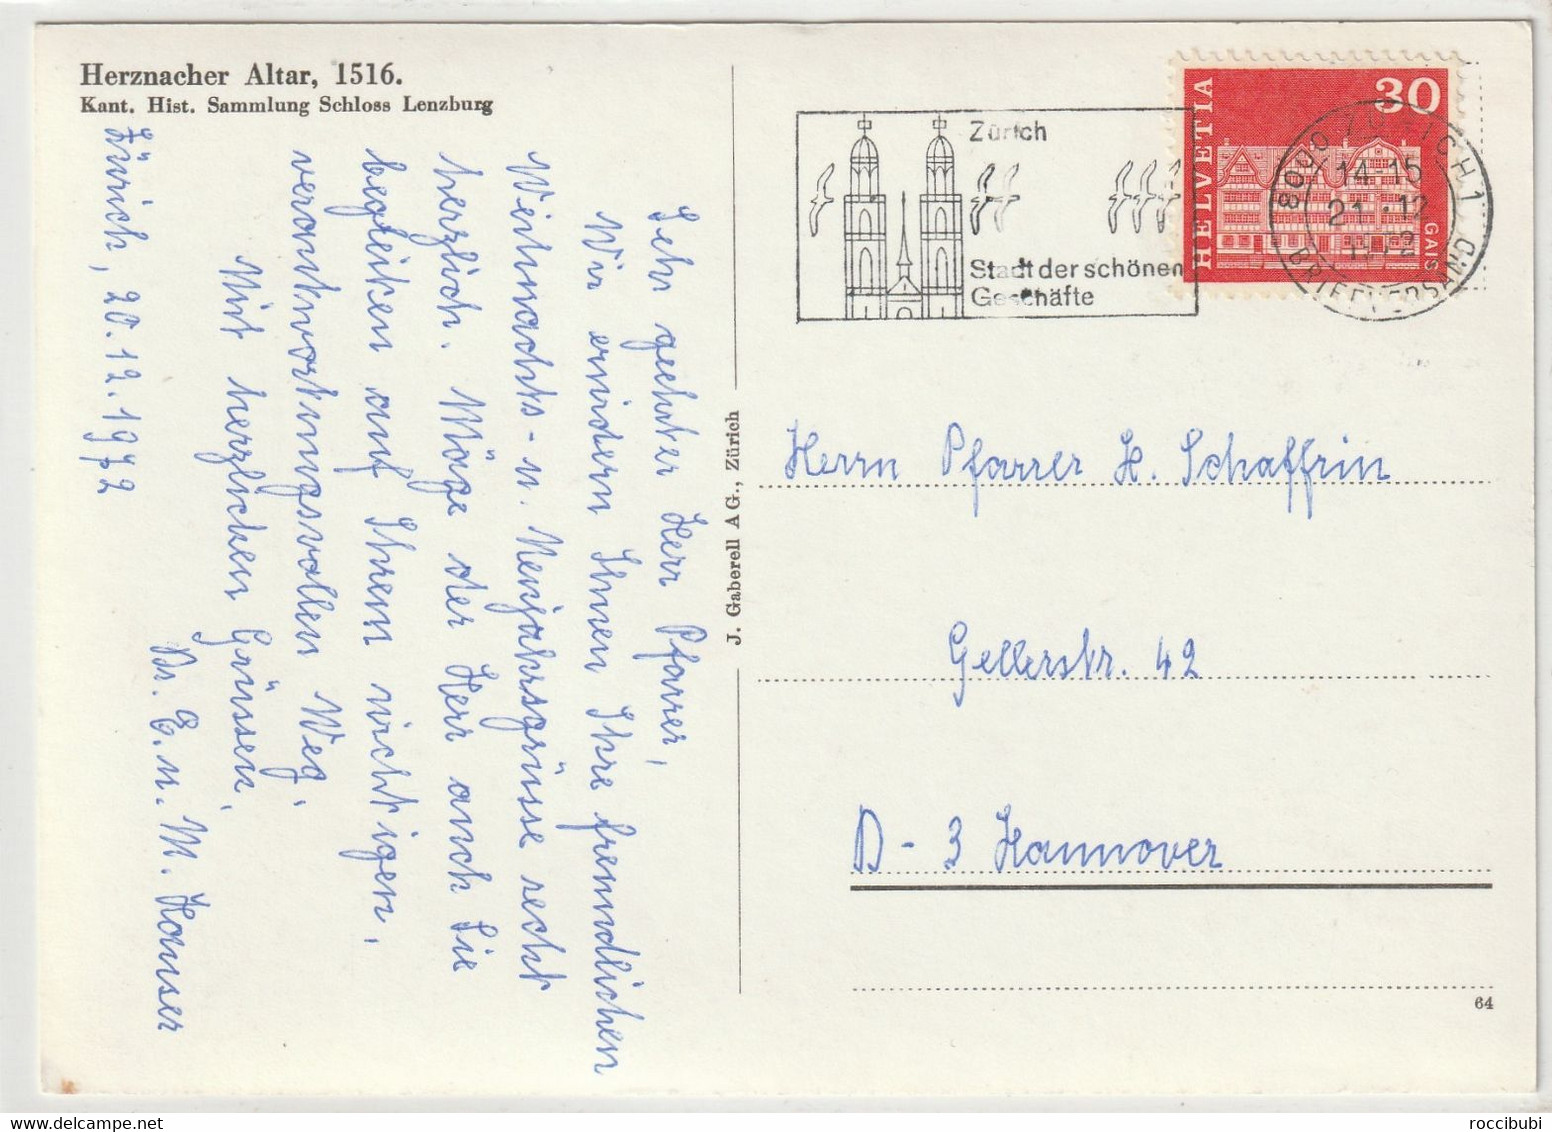 Herznacher Altar, 1516.
Kant. Hist. Sammlung Schloss Lenzburg
Zürich, 20.12.1972
Sehr geehrter Herr Pfarrer,
Wir erwidern Ihnen Ihre freundlichen
Weihnachts- u. Neujahrsgrüsse recht
herzlich. Möge der Herr auch Sie
begleiten auf Ihrem wichtigen,
verantwortungsvollen Weg.
Mit herzlichen Grüssen,
Dr. E. u. M. Hauser
J. Gaberell AG., Zürich
Zürich
Stadt der schönen
Geschäfte
HELVETIA
30
GAIS
8000 ZÜRICH 1
14-15
21.12
1972
BRIEFVERSAND
Herrn Pfarrer H. Schaffrin
Gellerstr. 42
D - 3 Hannover
64
roccibubi